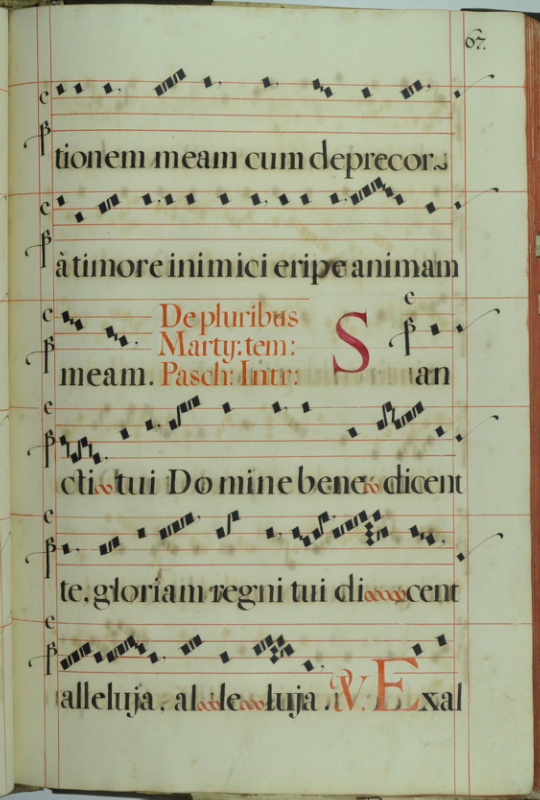 67.
tionem meam cum deprecor.
à timore inimici eripe animam
meam. De pluribus
Marty: tem:
Pasch: Intr: San
cti tui Domine bene dicent
te, gloriam regni tui di cent
alleluja, al le luja. V. Exal